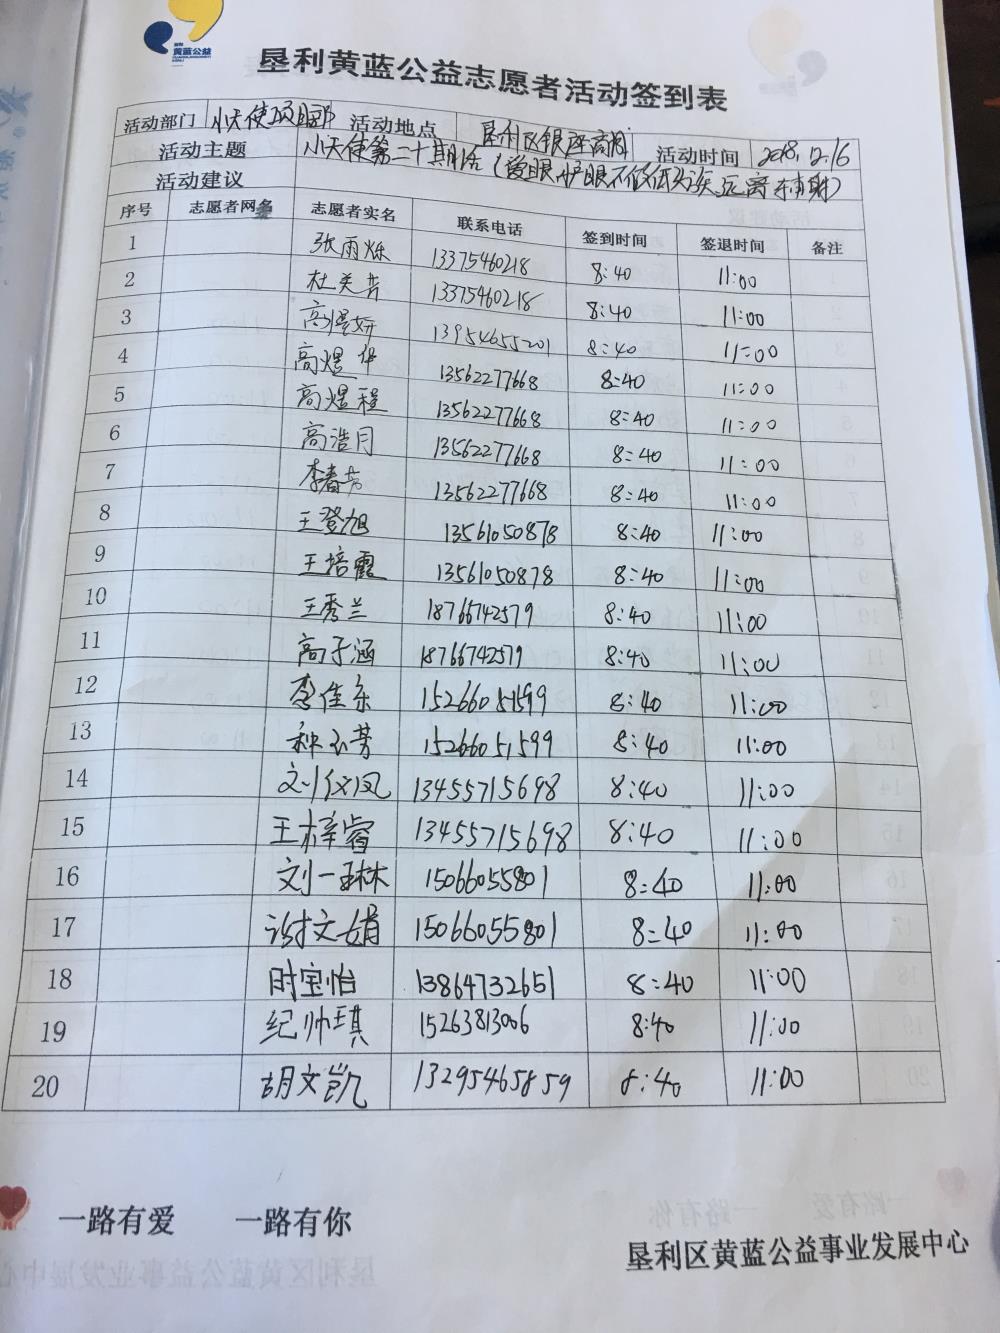 黄蓝公益
垦利黄蓝公益志愿者活动签到表
活动部门 小天使项目部 活动地点 垦利区银座商厦 活动时间 2018.12.16
活动主题 小天使第二十期小 不做低头族 远离辐射)
活动建议
序号 志愿者网名 志愿者实名 联系电话 签到时间 签退时间 备注
1 张雨烁 13375460218 8:40 11:00
2 杜美芳 13375460218 8:40 11:00
3 高煜妍 13954655201 8:40 11:00
4 高煜华 13562277668 8:40 11:00
5 高煜程 13562277668 8:40 11:00
6 高浩月 13562277668 8:40 11:00
7 李春芳 13562277668 8:40 11:00
8 王登旭 13561050878 8:40 11:00
9 王培霞 13561050878 8:40 11:00
10 王秀兰 18766742579 8:40 11:00
11 高子涵 18766742579 8:40 11:00
12 李佳乐 15266051599 8:40 11:00
13 种玉芳 15266051599 8:40 11:00
14 刘仪凤 13455715698 8:40 11:00
15 王梓睿 13455715698 8:40 11:00
16 刘一琳 15066055801 8:40 11:00
17 谢文娟 15066055801 8:40 11:00
18 时宝怡 13864732651 8:40 11:00
19 纪帅琪 15263813006 8:40 11:00
20 胡文凯 13295465859 8:40 11:00
一路有爱 一路有你
垦利区黄蓝公益事业发展中心